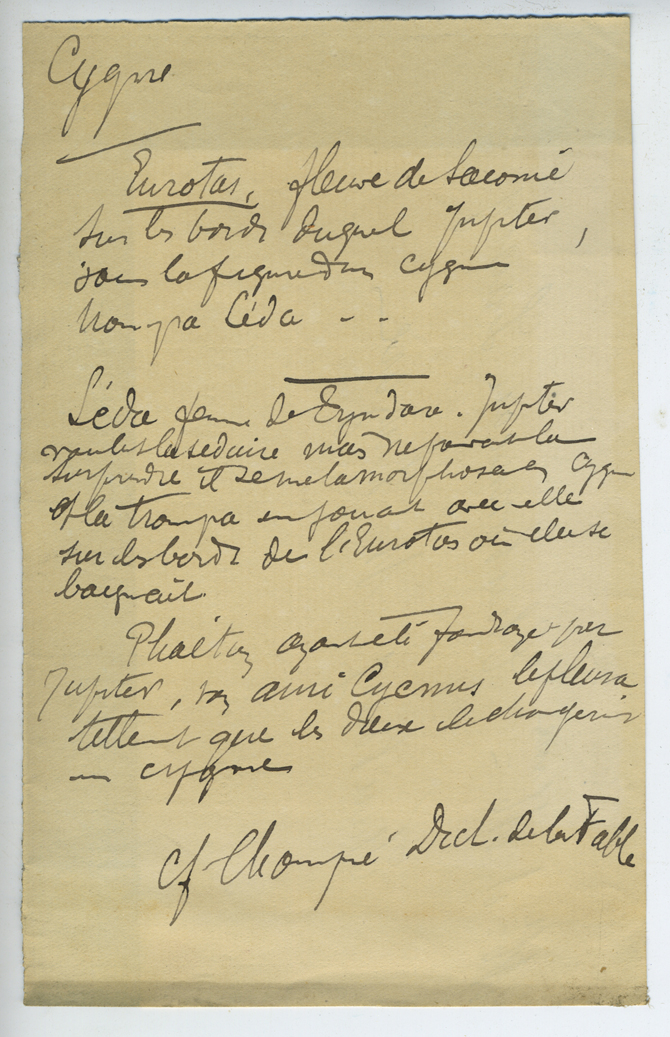 Cygne
Eurotas, fleuve de Laconie
sur les bords duquel Jupiter,
sous la figure d'un cygne
trompa Léda - -
Léda femme de Tyndare. Jupiter
voulut la séduire mais ne pouvant la
surprendre il se metamorphosa en cygne
et la trompa en jouant avec elle
sur les bords de l'Eurotas où elle se
baignait.
Phaéton ayant été foudroyé par
Jupiter, son ami Cycnus le pleura
tellement que les dieux le changèrent
en cygne
cf Chompré Dict. de la Fable